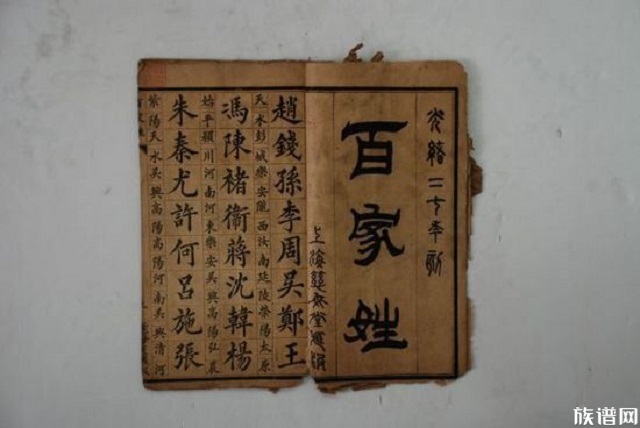 光緒二十年新
百家姓
趙錢孫李周吳鄭王
天水彭城樂安隴西汝南延陵滎陽太原
馮陳褚衞蔣沈韓楊
始平潁川河南河東樂安吳興高陽弘農
朱秦尤許何呂施張
紫陽天水吳興高陽高陽河南吳興清河
族谱网